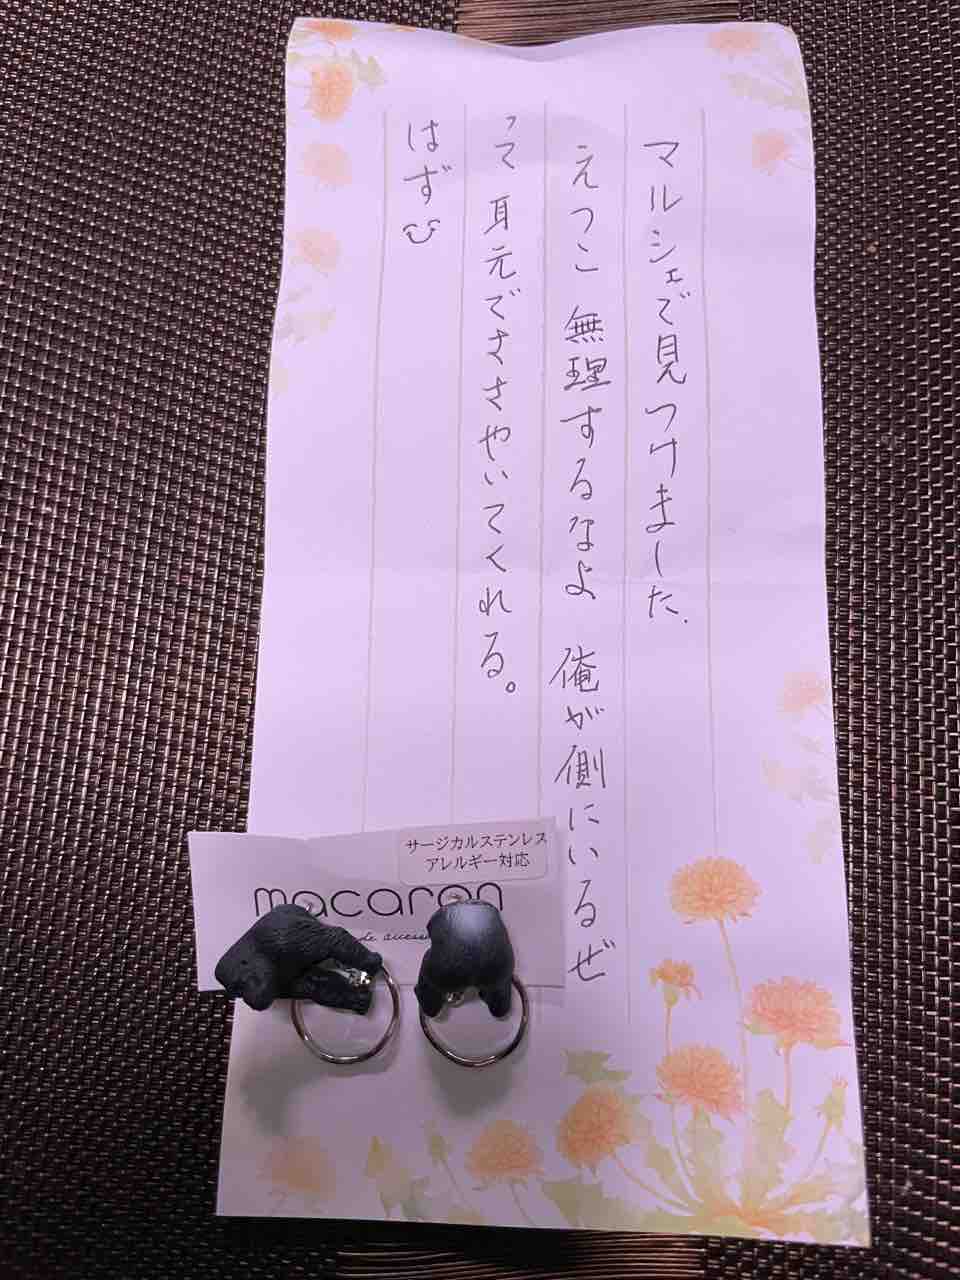 マルシェで見つけました.
えつこ 無理するなよ 俺が側にいるぜ
って 耳元でささやいてくれる。
はず
サージカルステンレス
アレルギー対応
macaron